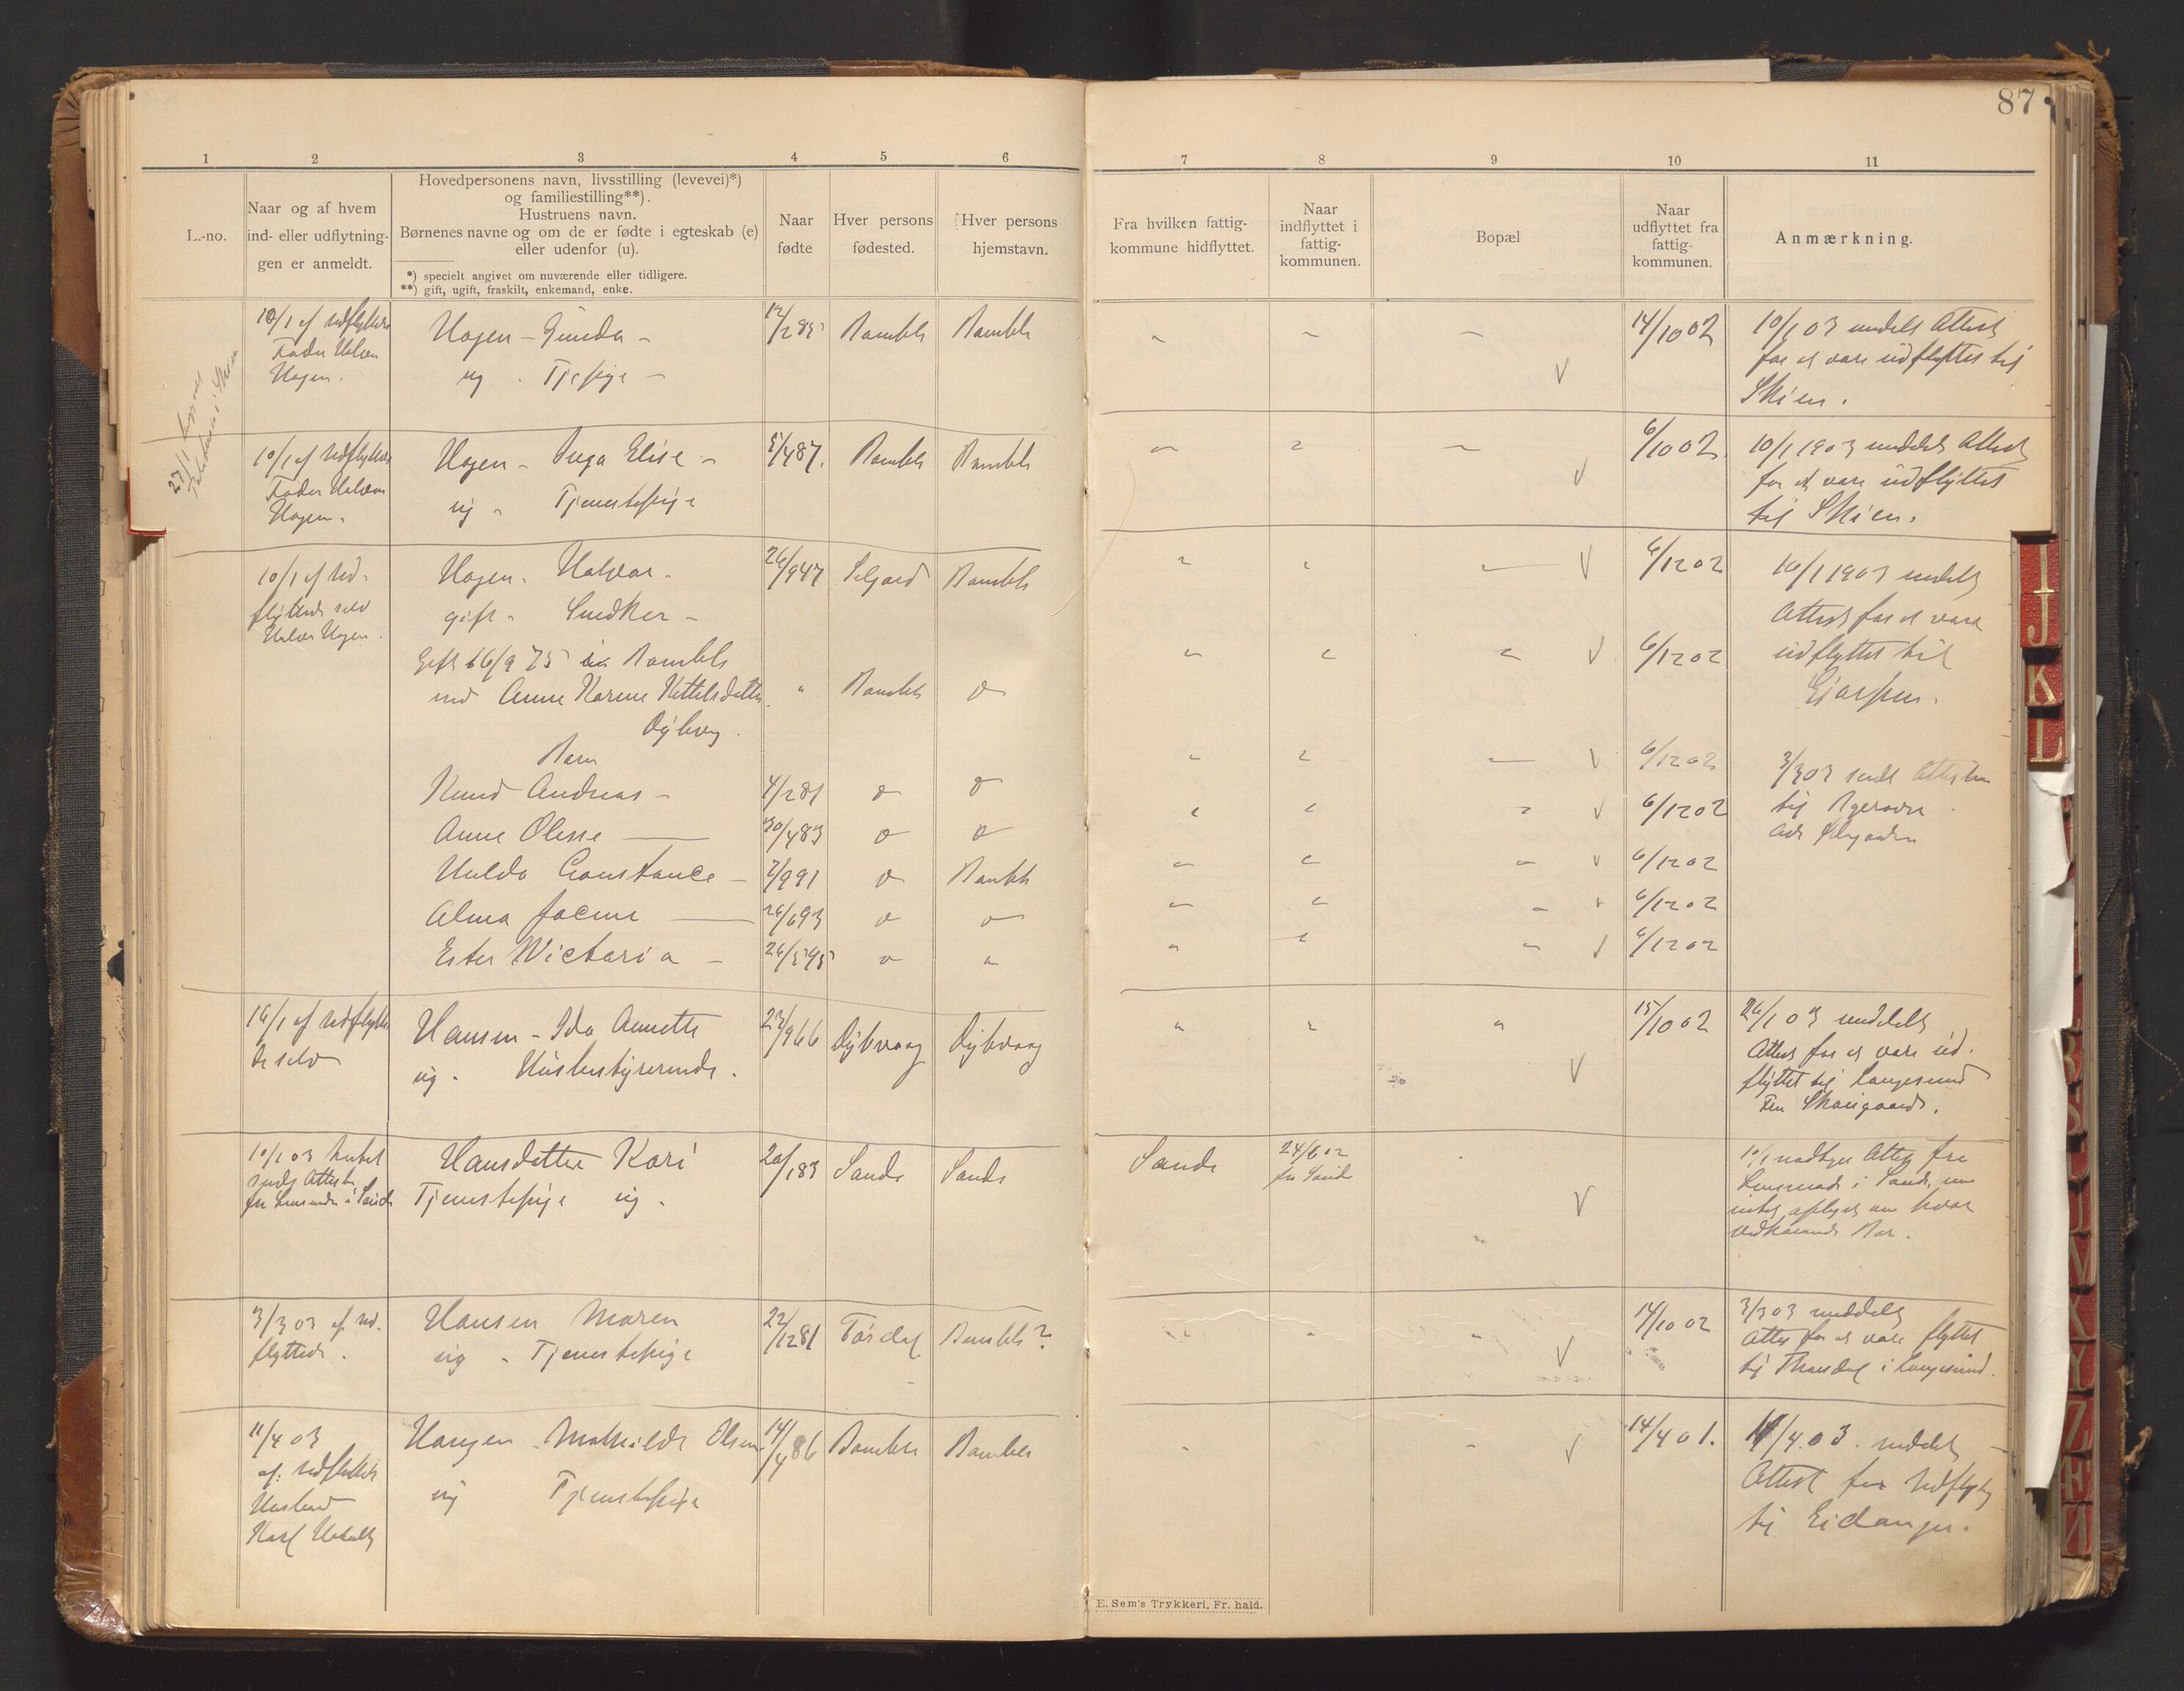 87
1 2 3 4 5 6 7 8 9 10 11
L.-no.
Naar og af hvem
ind- eller udflytnin-
gen er anmeldt.
Hovedpersonens navn, livsstilling (levevei)*)
og familiestilling**).
Hustruens navn.
Børnenes navne og om de er fødte i egteskab (e)
eller udenfor (u).
*) specielt angivet om nuværende eller tidligere.
**) gift, ugift, fraskilt, enkemand, enke.
Naar
fødte
Hver persons
fødested.
Hver persons
hjemstavn.
Fra hvilken fattig-
kommune hidflyttet.
Naar
indflyttet i
fattig-
kommunen.
Bopæl
Naar
udflyttet fra
fattig-
kommunen.
Anmærkning.
10/1 af Udflytteres
Fader Halvor
Hagen.
Hagen - Gunda -
ug . Tjepige -
12/2 85 Bamble Bamble
14/10 02
10/1 03 meddelt Attest
for at være udflyttet til
Skien.
27/1
10/1 af Udflytteres
Fader Halvor
Hagen.
Hagen - Inga Elise -
ug - Tjenestepige
5/4 87. Bamble Bamble
6/10 02
10/1 1903 meddelt Attest
for at være udflyttet
til Skien.
10/1 af Ud-
flyttede selv
Halvor Hagen.
Hagen. Halvor.
gift - Snedker -
Gift 16/9 75 i Bamble
med Anne Karine Kittelsdatter
Dybvag.
Barn
26/9 47 Seljord Bamble
Bamble
6/12 02
6/12 02
10/1 1903 meddelt
Attest for at være
udflyttet til
Gjerpen.
Knud Andreas - 4/2 81
6/12 02
Anne Olesse 30/4 83
6/12 02
Hulda Constance - 7/9 91 Bamble
6/12 02
Alma Jacine 26/6 93
6/12 02
Ester Victoria - 26/5 95
6/12 02
3/3 03 sendt Attesten
til
16/1 af Udflytte
de selv
Hansen - Ida Annette
ug. Husbestyrerinde.
23/9 66 Dybvaag Dybvaag
15/10 02
26/1 03 meddelt
Attest for at være ud-
flyttet til Langesund
Fru Skougaard.
10/1 03
fra Lensmanden i Sande
Hansdatter Kari
Tjenestepige ug.
20/1 83 Sande Sande
Sande
24/6 02
fra Sande
10/1 modtager Attest fra
Lensmand i Sande, men
intet oplyst om hvor
vedkommende Bor.
3/3 03 af Ud-
flyttede.
Hansen Maren
ug - Tjenestepige
22/12 81 Tørdal Bamble?
14/10 02
3/3 03 meddelt
Attest for at være flyttet
til Thorsdal i Langesund.
11/4 03
af: Udflyttede
Husbond
Karl
Haugen - Mathilde Olsen.
ug Tjenestepige
14/4 86 Bamble Bamble
14/4 01.
11/4.03. meddelt
Attest for Udflytg
til Eidanger.
I
J
K
L
E. Sem's Trykkeri, Fr. hald.